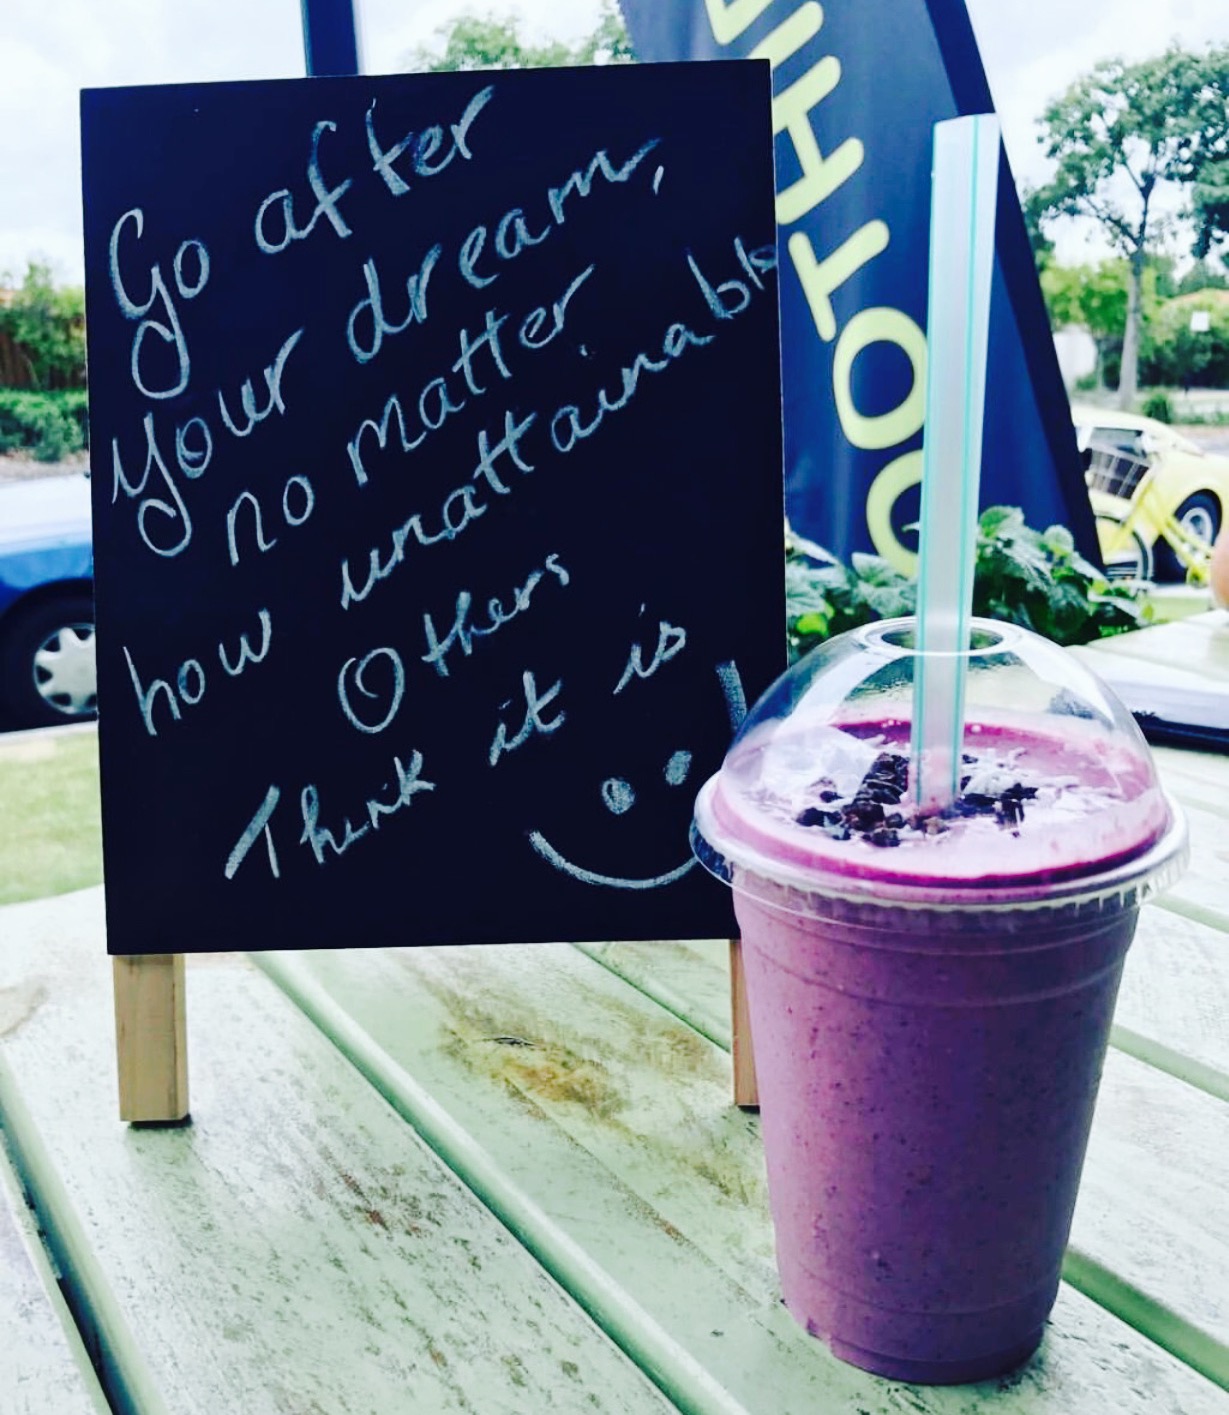 Go after
your dream,
no matter
how unattainable
Others
Think it is